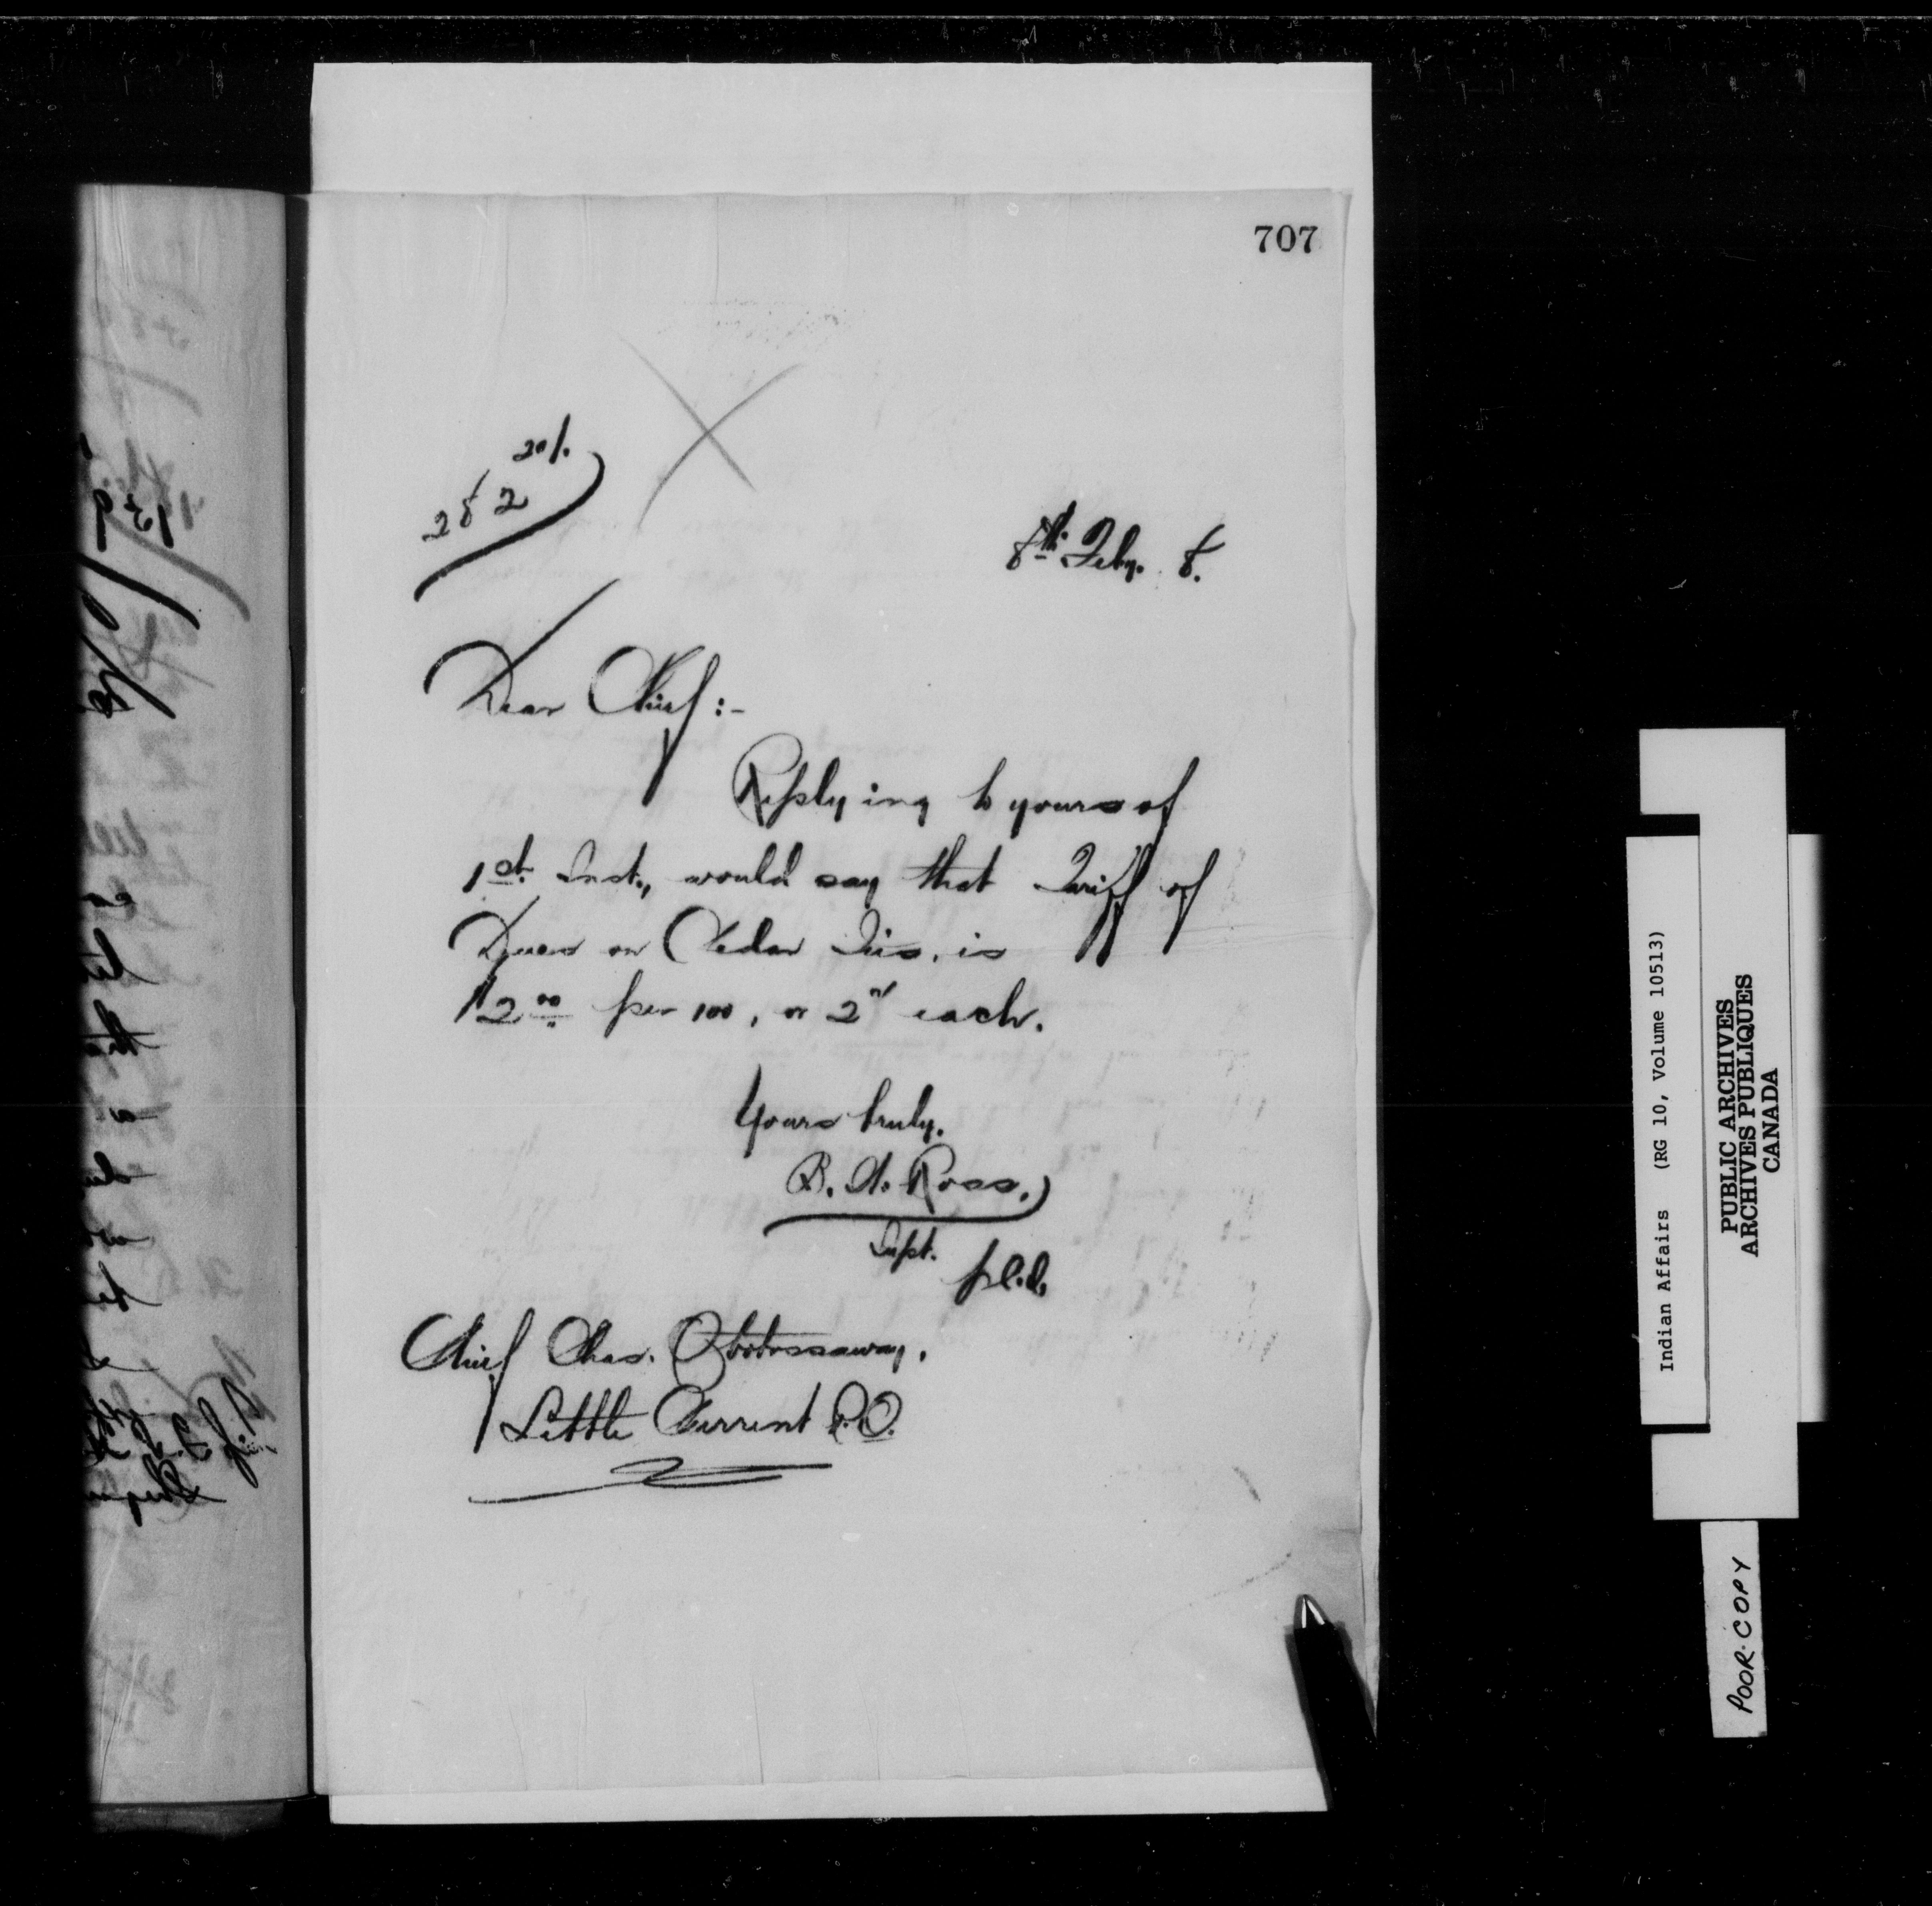 707
20/.
282
8th Feby. 8.
Dear Chief :-
Replying to yours of
1st. Inst., would say that Tariff of
Dues on Cedar Ties, is
$2.00 per 100, or 2¢ each.
Yours truly.
B. A. Ross.
Supt.
Chief Chas. Obotossaway,
Little Current P.O.
Indian Affairs (RG 10, Volume 10513)
PUBLIC ARCHIVES
ARCHIVES PUBLIQUES
CANADA
POOR COPY